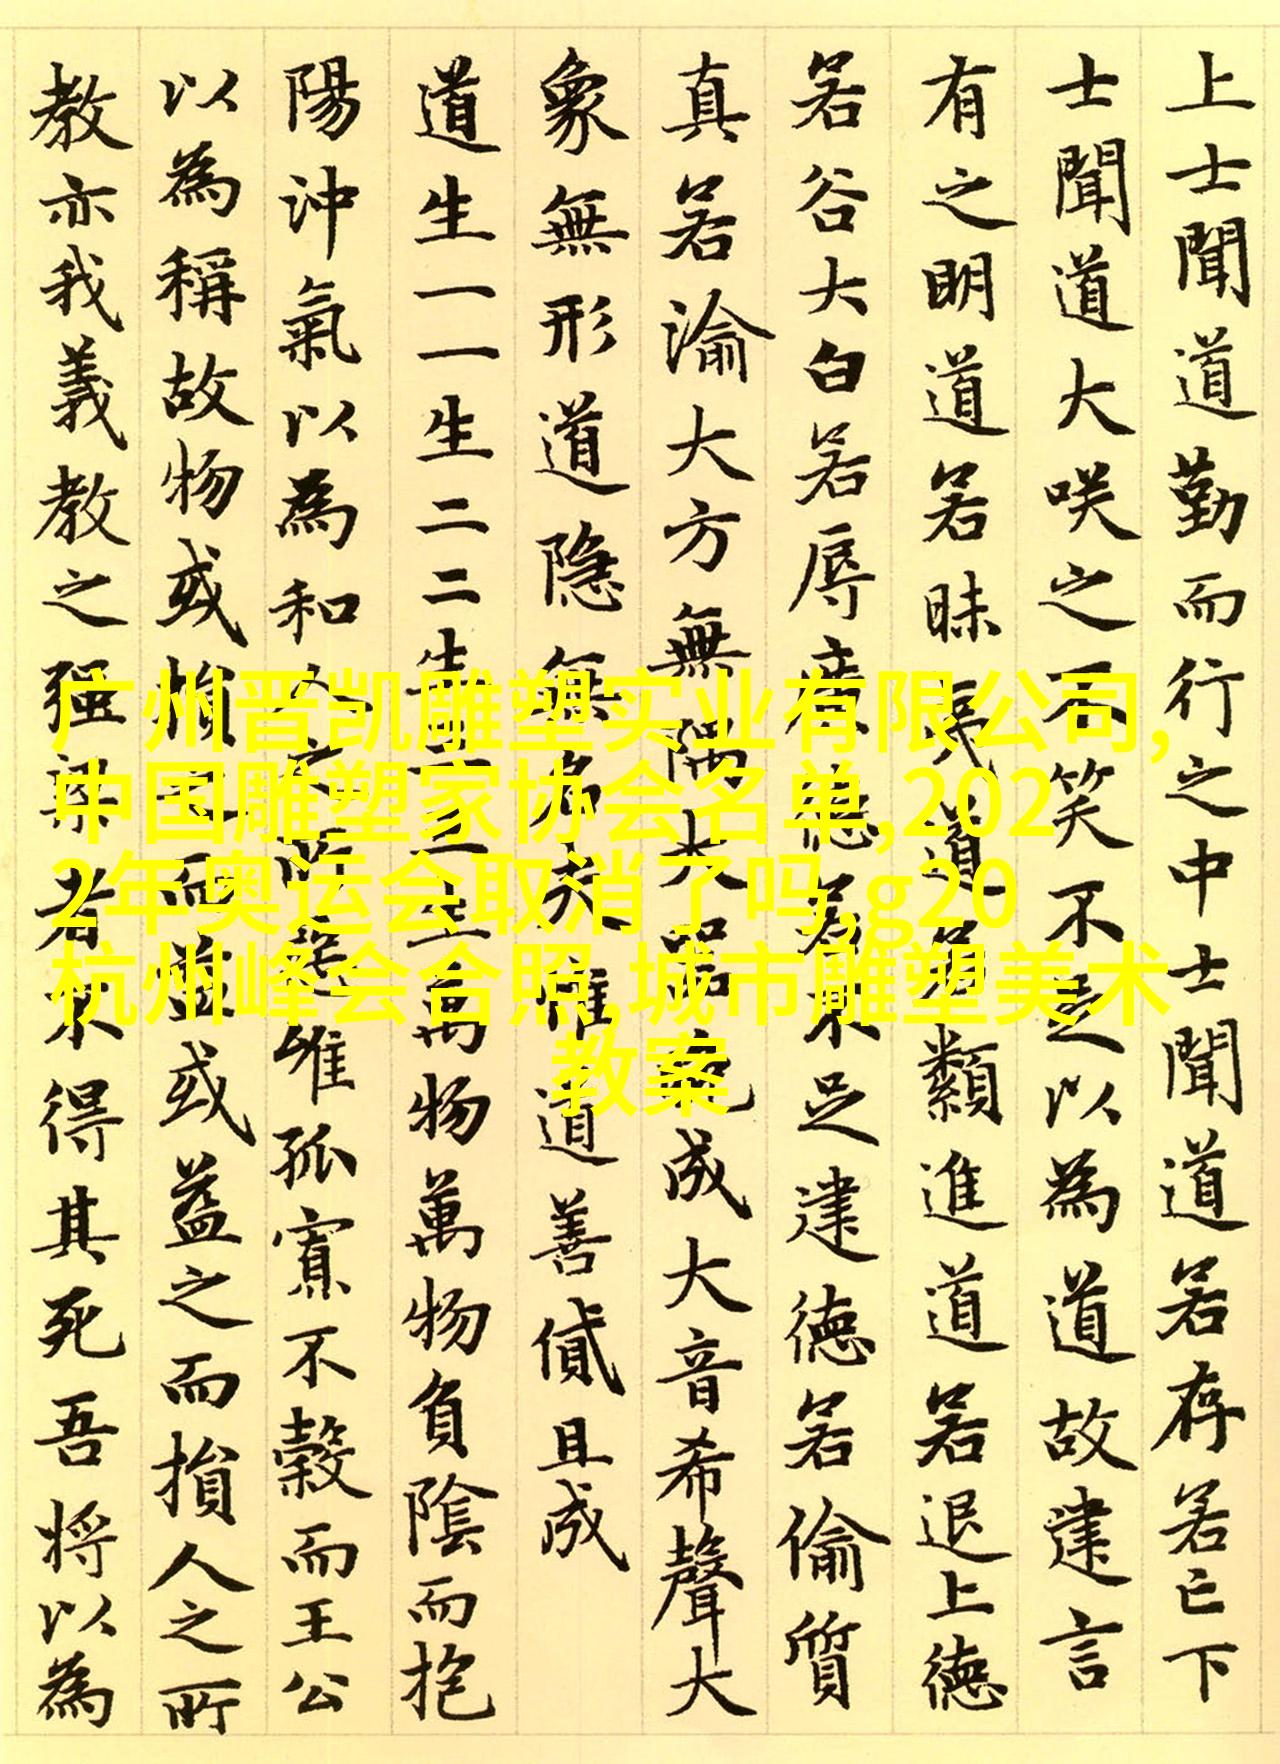 上士聞道勤而行之中士聞道若存若亡下
士聞道大咲之不笑不足以為道故建言
有之明道若昧夷道若類進道若退上德
若谷大白若辱廣德若不足建德若偷質
真若渝大方無隅大器晚成大音希聲大
象無形道隱無名夫惟道善貸且成
道生一一生二二生三三生萬物萬物負陰而抱
陽沖氣以為和人之所惡唯孤寡不穀而王公
以為稱故物或損之而益或益之而損人之所
教亦我義教之强梁者不得其死吾將以為
广州晋凯雕塑实业有限公司,
中国雕塑家协会名单,202
2年奥运会取消了吗,g20
杭州峰会合照,城市雕塑美术
教案